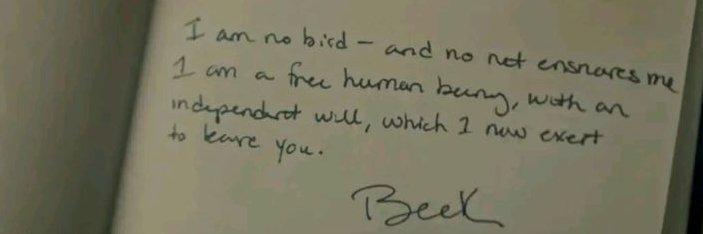 I am no bird - and no net ensnares me
I am a free human being, with an
independent will, which I now exert
to leave you.
Beck